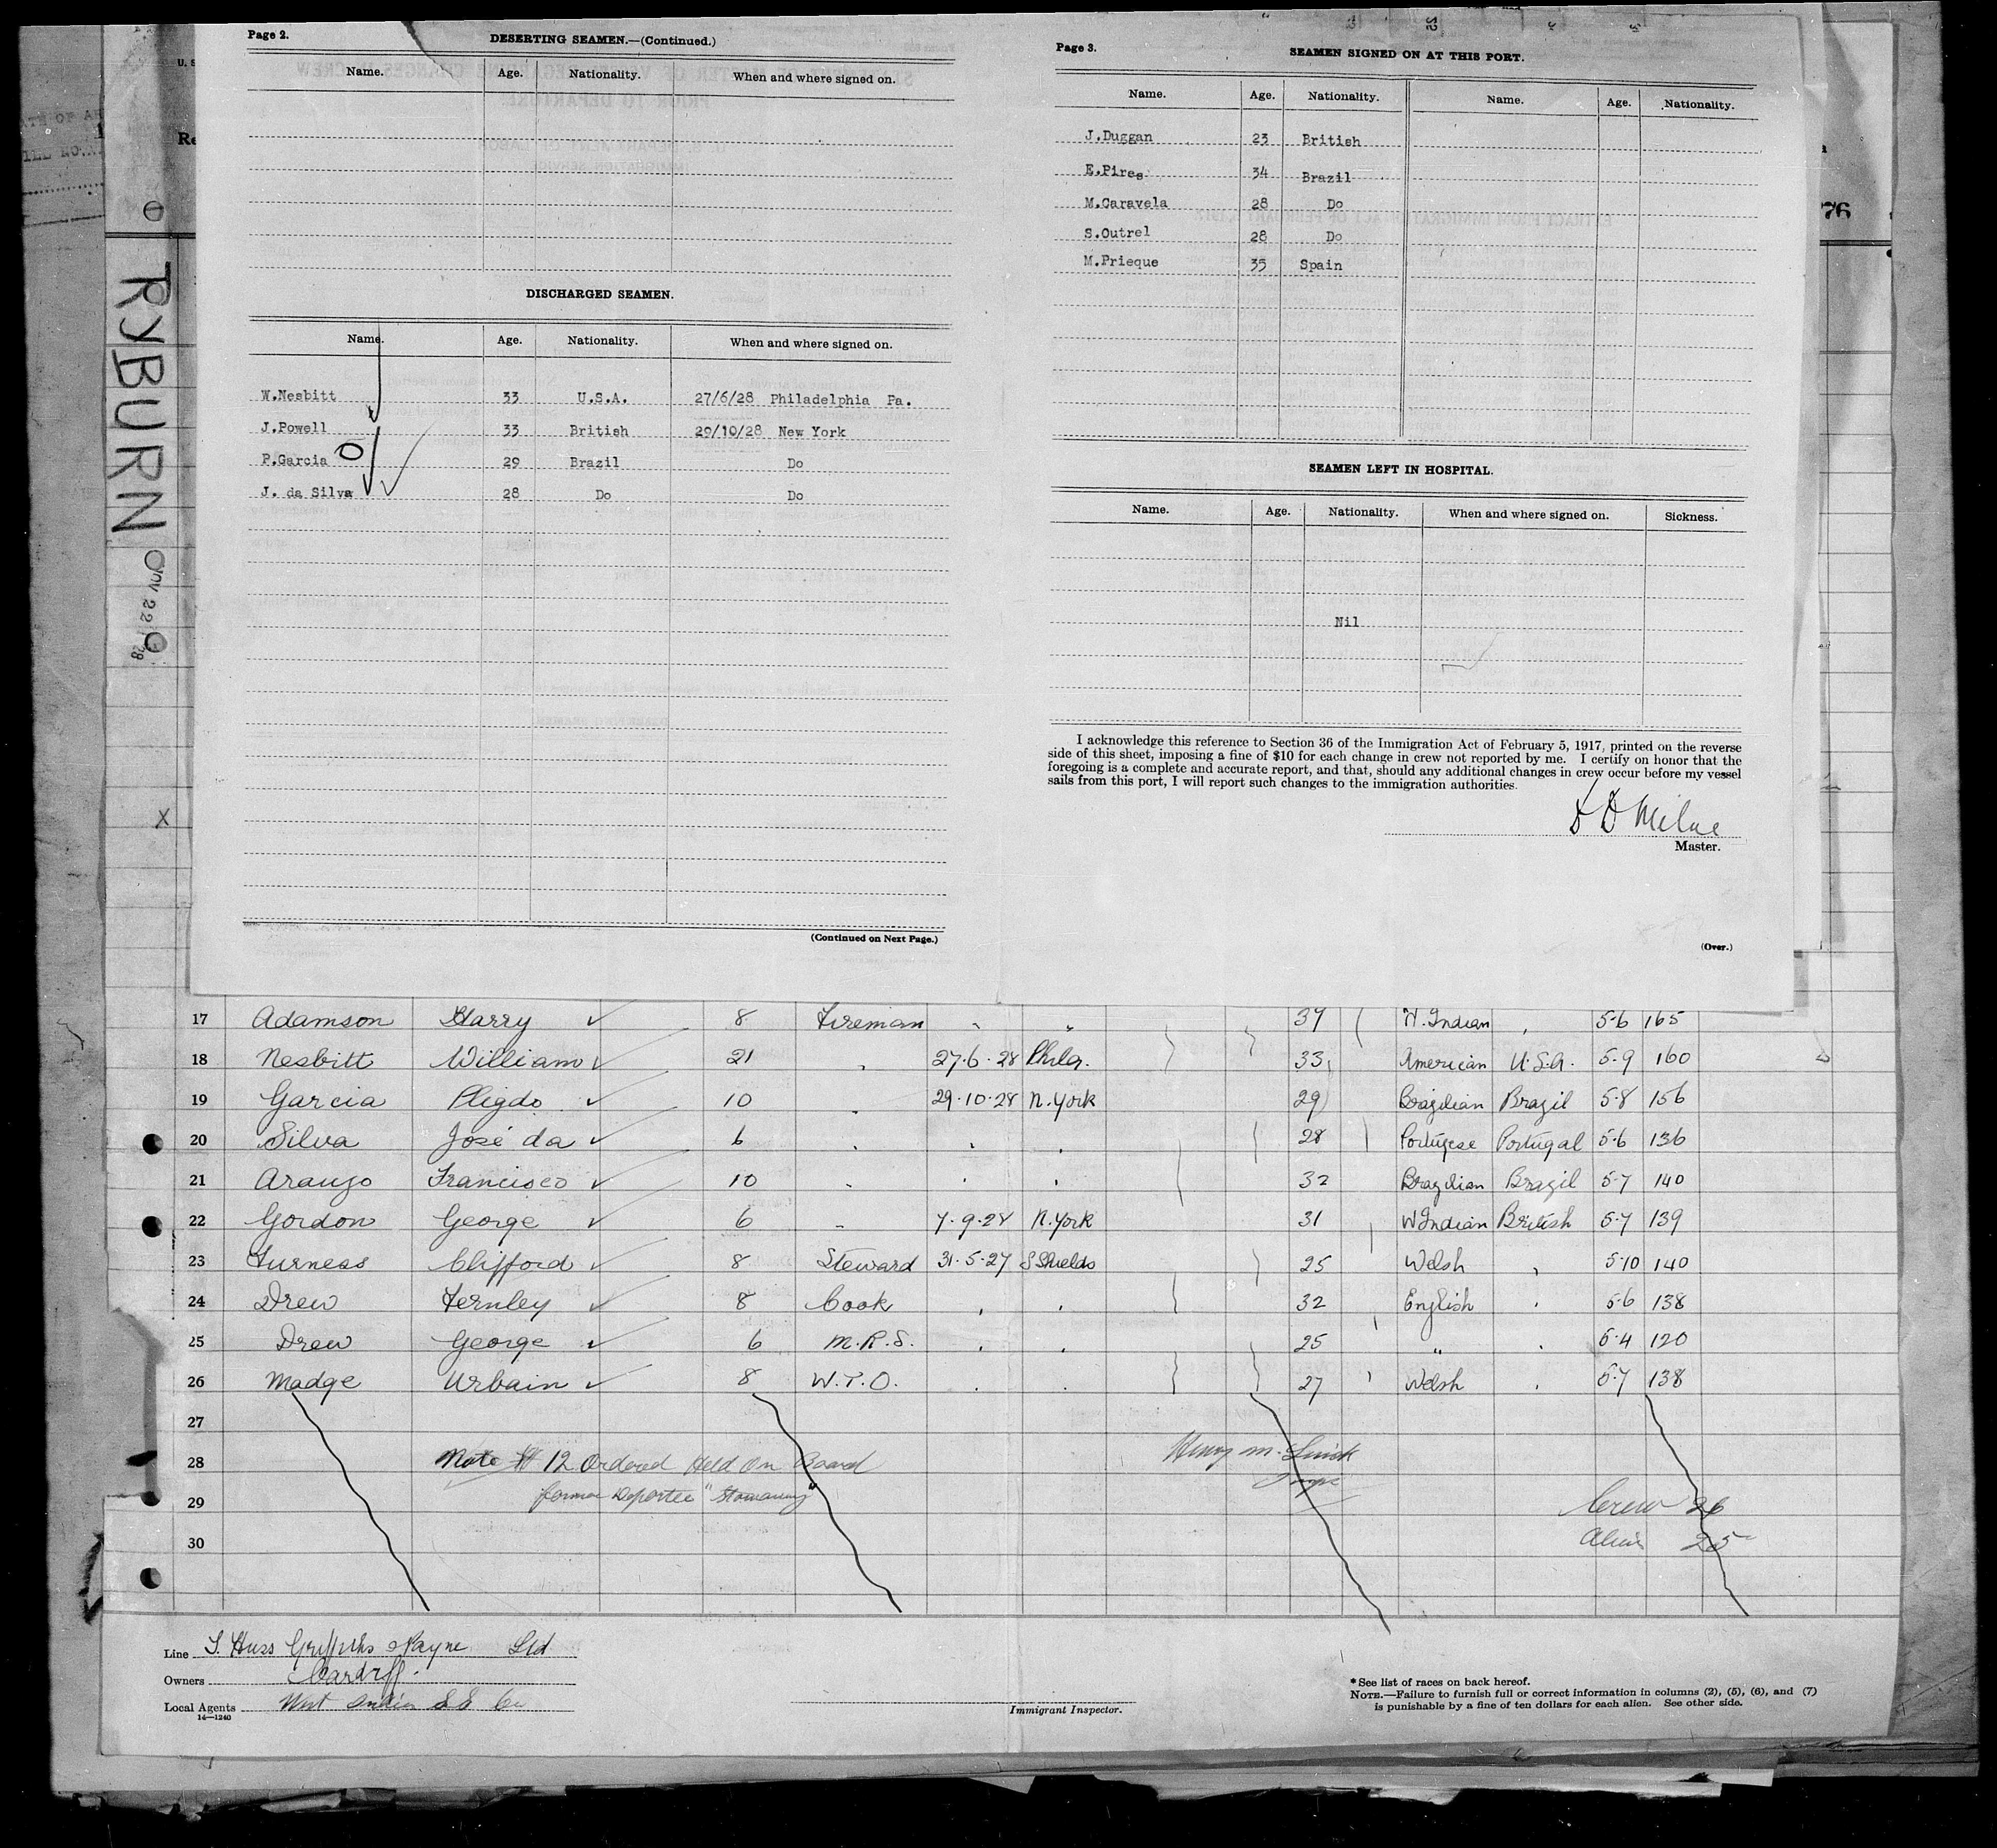 Page 2.
DESERTING SEAMEN.—(Continued.)
Name. Age. Nationality. When and where signed on.
DISCHARGED SEAMEN.
Name. Age. Nationality. When and where signed on.
W.Nesbitt 33 U.S.A. 27/6/28 Philadelphia Pa.
J.Powell 33 British 29/10/28 New York
P.Garcia 29 Brazil Do
J. da Silva 28 Do Do
(Continued on Next Page.)
Page 3.
SEAMEN SIGNED ON AT THIS PORT.
Name. Age. Nationality. Name. Age. Nationality.
J.Duggan 23 British
E.Pires 34 Brazil
M.Caravela 28 Do
S.Outrel 28 Do
M.Prieque 35 Spain
SEAMEN LEFT IN HOSPITAL.
Name. Age. Nationality. When and where signed on. Sickness.
Nil
I acknowledge this reference to Section 36 of the Immigration Act of February 5, 1917, printed on the reverse
side of this sheet, imposing a fine of $10 for each change in crew not reported by me. I certify on honor that the
foregoing is a complete and accurate report, and that, should any additional changes in crew occur before my vessel
sails from this port, I will report such changes to the immigration authorities.
D D Milne
Master.
(Over.)
RYBURN
NOV 22 28
17 Adamson Harry 8 Fireman " " 39 W. Indian " 5-6 165
18 Nesbitt William 21 " 27.6.28 Phila. 33 American U.S.A. 5-9 160
19 Garcia Pligdo 10 " 29.10.28 N.York 29 Brazilian Brazil 5-8 156
20 Silva José da 6 " " " 28 Portugese Portugal 5-6 136
21 Araujo Francisco 10 " " " 32 Brazilian Brazil 5-7 140
22 Gordon George 6 " 7.9.28 N.York 31 W Indian British 5-7 139
23 Furneas Clifford 8 Steward 31.5.27 S Shields 25 Welsh " 5-10 140
24 Drew Fernley 8 Cook " " 32 English " 5-6 138
25 Drew George 6 M.R.S. " " 25 " " 5-4 120
26 Madge Urbain 8 W.T.O. " " 27 Welsh " 5-7 138
27
28 Note # 12 Ordered Held On Board
former Deportee "Stowaway"
Henry M.
29 Crew 26
30 Alien 25
Line Griffiths & Payne Ltd
Owners Cardiff.
Local Agents West Indian S S Co
14—1240
Immigrant Inspector.
* See list of races on back hereof.
NOTE.—Failure to furnish full or correct information in columns (2), (5), (6), and (7)
is punishable by a fine of ten dollars for each alien. See other side.